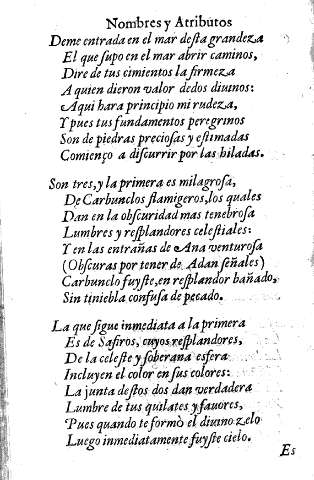 Nombres y Atributos
Deme entrada en el mar deſta grandeza
El que ſupo en el mar abrir caminos,
Dire de tus cimientos la firmeza
A quien dieron valor dedos diuinos:
Aqui hara principio mi rudeza,
Y pues tus fundamentos peregrinos
Son de piedras precioſas y eſtimadas
Comienço a diſcurrir por las hiladas.
Son tres, y la primera es milagroſa,
De Carbunclos flamigeros, los quales
Dan en la obſcuridad mas tenebroſa
Lumbres y reſplandores celeſtiales:
Y en las entrañas de Ana venturoſa
(Obſcuras por tener de Adan ſeñales)
Carbunclo fuyſte, en reſplandor bañado,
Sin tiniebla confuſa de pecado.
La que ſigue inmediata a la primera
Es de Safiros, cuyos reſplandores,
De la celeſte y ſoberana esfera
Incluyen el color en ſus colores:
La junta deſtos dos dan verdadera
Lumbre de tus quilates y fauores,
Pues quando te formò el diuino zelo
Luego inmediatamente fuyſte cielo.
Es